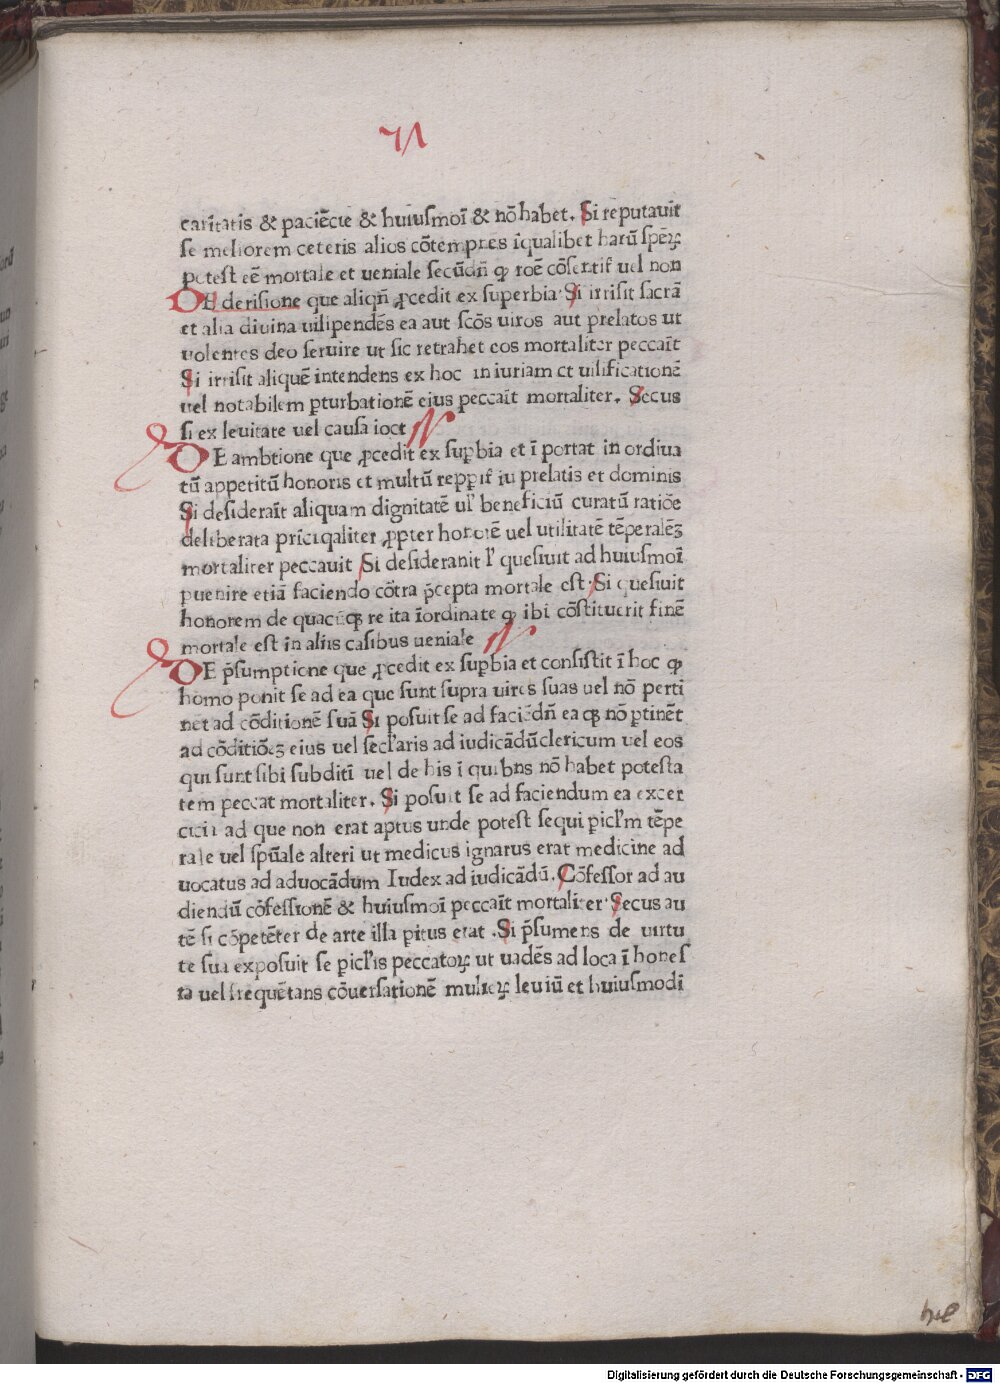 caritatis & paciēcie & huiusmoī & nō habet. Si reputauit
se meliorem ceteris alios cōtempnes īqualibet harū spēꝝ
potest eē mortale et ueniale secūdn̄ ꝙ roē cōsentit uel non
DE derisione que aliqn̄ ꝓcedit ex superbia Si irrisit sacrā
et alia diuina uilipendēs ea aut scōs uiros aut prelatos ut
uolentes deo seruire ut sic retrahet eos mortaliter peccaīt
Si irrisit aliquē intendens ex hoc in iuriam et uilificationē
uel notabilem ꝑturbationē eius peccaīt mortaliter. Secus
si ex leuitate uel causa ioci
DE ambtione que ꝓcedit ex suꝑbia et ī portat in ordiua
tū appetitū honoris et multū repꝑit̄ iu prelatis et dominis
Si desideraīt aliquam dignitatē ul' beneficiū curatū ratiōe
deliberata priciqaliter ꝓpter honorē uel utilitatē tēperalēꝫ
mortaliter peccauit Si desideranit l' quesiuit ad huiusmoī
puenire etiā faciendo cōtra p̄cepta mortale est. Si quesiuit
honorem de quacūꝙ re ita īordinate ꝙ ibi cōstituerit finē
mortale est in aliis casibus ueniale
DE p̄sumptione que ꝓcedit ex suꝑbia et consistit ī hoc ꝙ
homo ponit se ad ea que sunt supra uires suas uel nō perti
net ad cōditionē suā Si posuit se ad faciēdn̄ ea ꝙ nō ꝑtinēt
ad cōditiōeꝫ eius uel secl'aris ad iudicādū clericum uel eos
qui sunt sibi subditi uel de his ī quibns nō habet potesta
tem peccat mortaliter. Si posuit se ad faciendum ea excer
cicii ad que non erat aptus unde potest sequi picl'm tēpe
rale uel spūale alteri ut medicus ignarus erat medicine ad
uocatus ad aduocādum Iudex ad iudicādū. Cōfessor ad au
diendū cōfessionē & huiusmoī peccaīt mortaliter Secus au
tē si cōpetēter de arte illa pitus erat. Si p̄sumens de uirtu
te sua exposuit se picl'is peccatoꝝ ut uadēs ad loca ī hones
ta uel frequētans cōuersationē mulieꝝ leuiū et huiusmodi
Digitalisierung gefördert durch die Deutsche Forschungsgemeinschaft - DFG